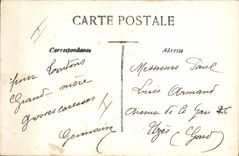 CARTE POSTALE
Correspondance
Adresse
pour Toutous
Grand mère
grosses caresses
Germaine
Messieurs Paul
Louis Armand
Avenue de la Gare 26
Uzès (Gard)